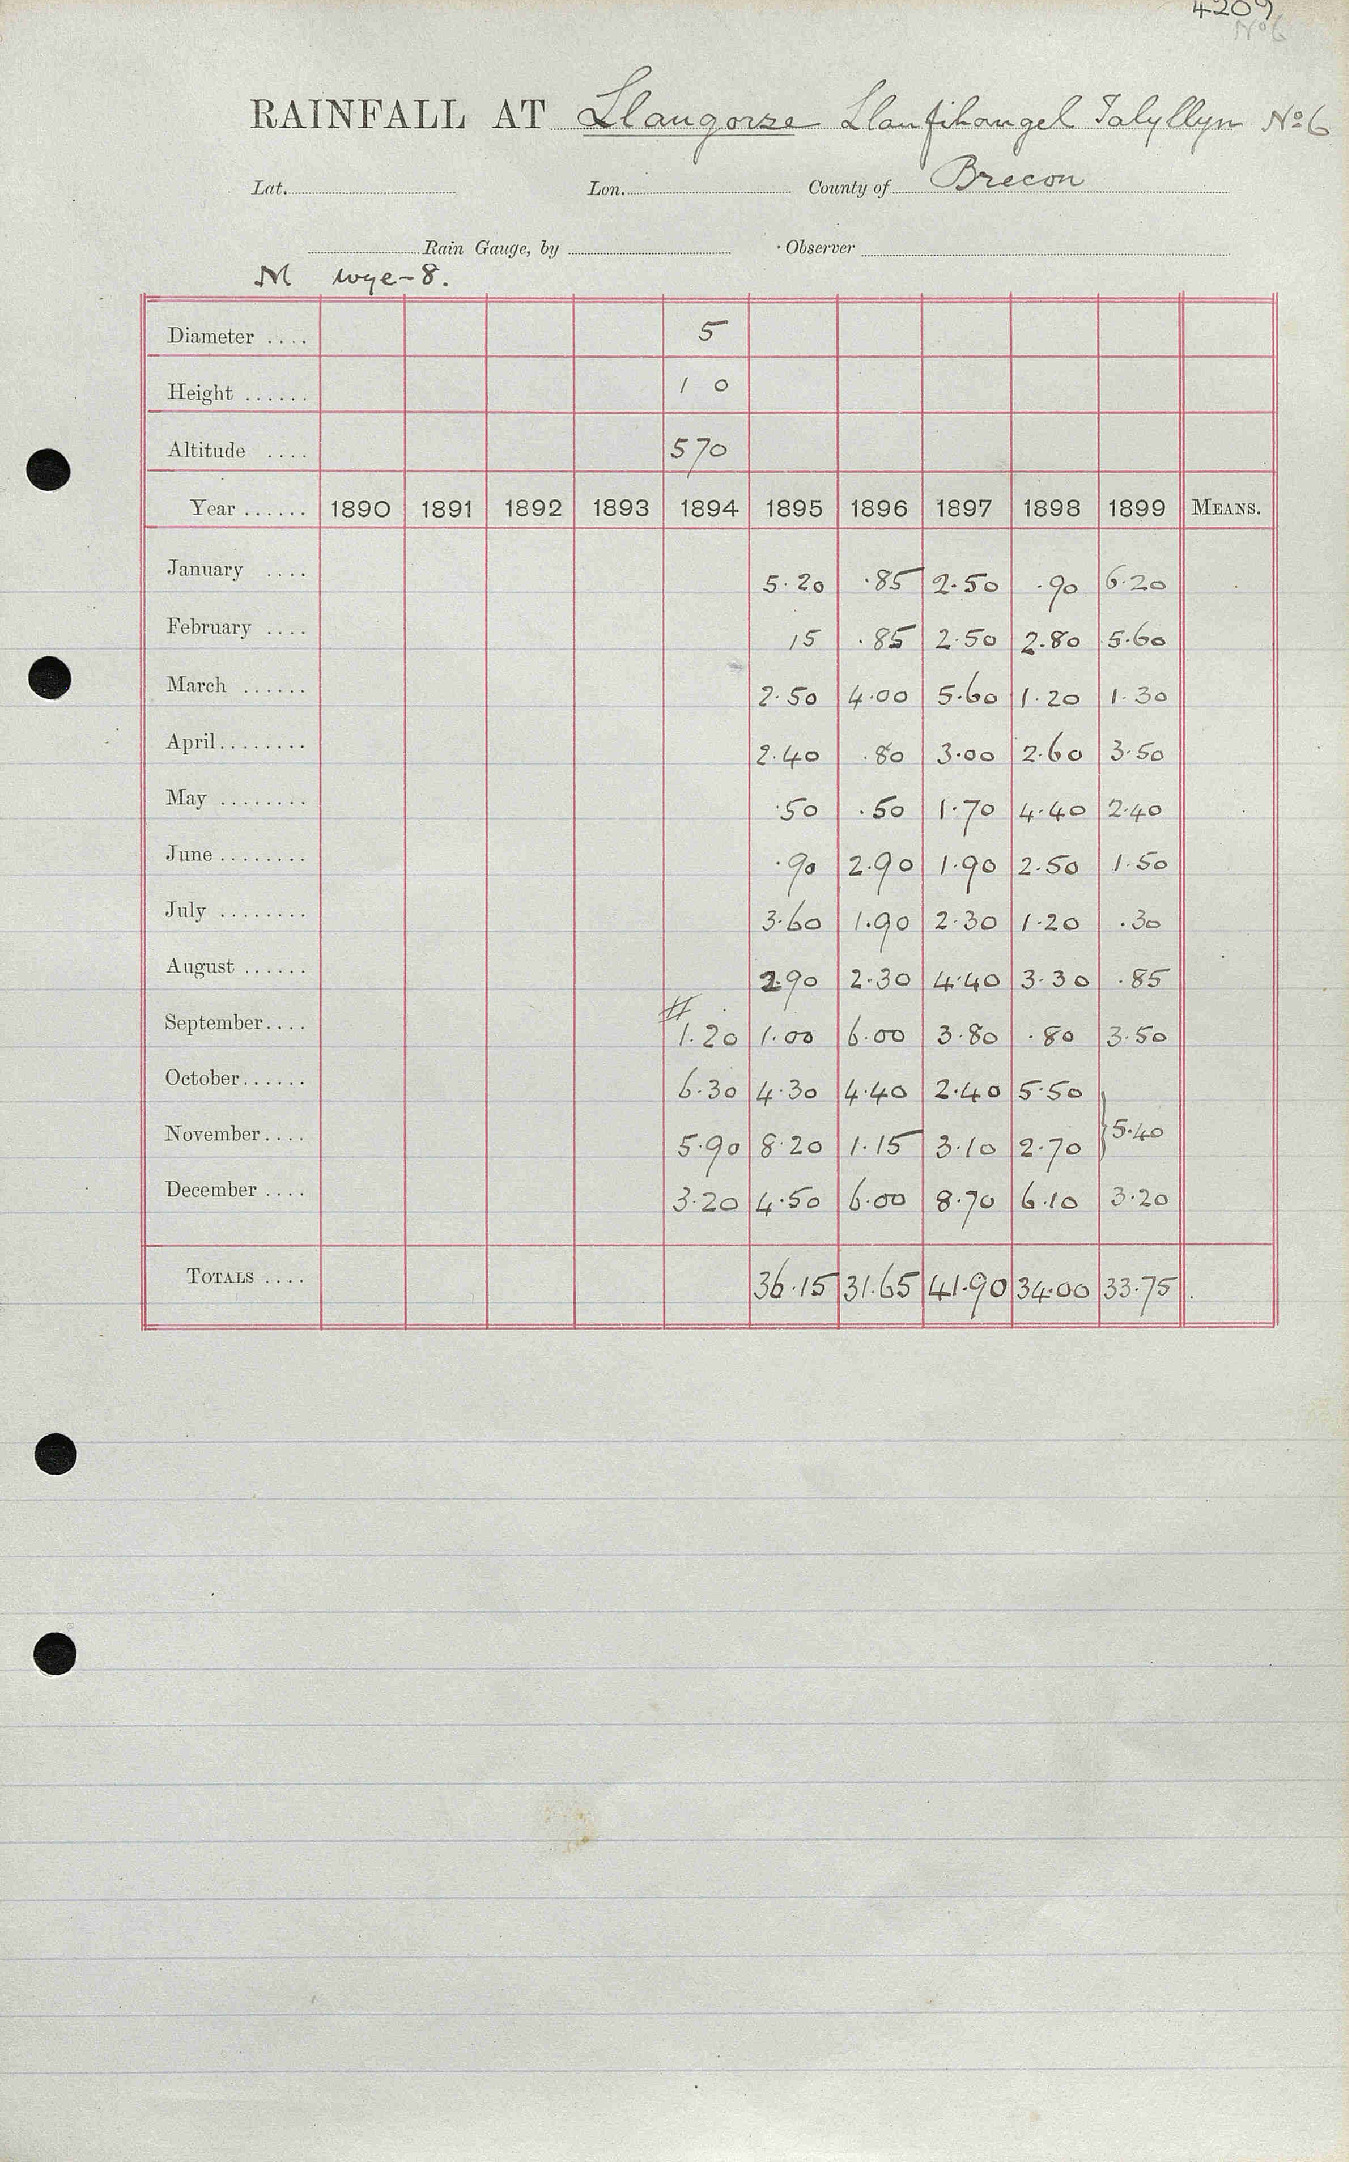 4209
No 6
RAINFALL AT Llangorse Llanfihangel Talyllyn No 6
Lat. Lon. County of Brecon
Rain Gauge, by Observer
M wye-8.
Diameter .... 5
Height ...... 1 0
Altitude .... 570
Year ...... 1890 1891 1892 1893 1894 1895 1896 1897 1898 1899 MEANS.
January .... 5.20 .85 2.50 .90 6.20
February .... 15 .85 2.50 2.80 5.60
March ...... 2.50 4.00 5.60 1.20 1.30
April........ 2.40 .80 3.00 2.60 3.50
May ........ .50 .50 1.70 4.40 2.40
June ........ .90 2.90 1.90 2.50 1.50
July ........ 3.60 1.90 2.30 1.20 .30
August ...... 2.90 2.30 4.40 3.30 .85
September.... # 1.20 1.00 6.00 3.80 .80 3.50
October...... 6.30 4.30 4.40 2.40 5.50
November.... 5.90 8.20 1.15 3.10 2.70 } 5.40
December .... 3.20 4.50 6.00 8.70 6.10 3.20
TOTALS .... 36.15 31.65 41.90 34.00 33.75